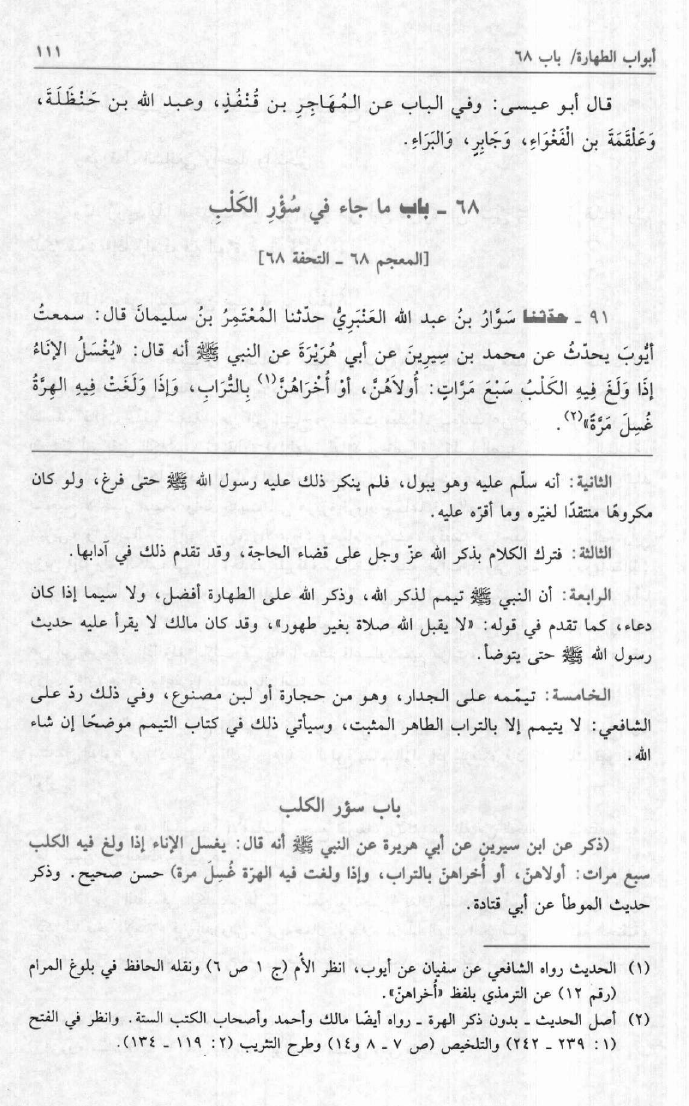 أبواب الطهارة/ باب ٦٨
١١١
قال أبو عيسى: وفي الباب عن المُهَاجِرِ بن قُنْفُذٍ، وعبد الله بن حَنْظَلَةَ،
وَعَلْقَمَةَ بن الْفَغْوَاءِ، وَجَابِرٍ، وَالبَرَاءِ.
٦٨ ـ باب ما جاء في سُؤْرِ الكَلْبِ
[المعجم ٦٨ ـ التحفة ٦٨]
٩١ ـ حدّثنا سَوَّارُ بنُ عبد الله العَنْبَرِيُّ حدّثنا المُعْتَمِرُ بنُ سليمانَ قال: سمعتُ
أيُّوبَ يحدّثُ عن محمد بن سِيرِينَ عن أبي هُرَيْرَةَ عن النبي ﷺ أنه قال: «يُغْسَلُ الإنَاءُ
إذَا وَلَغَ فِيهِ الكَلْبُ سَبْعَ مَرَّاتٍ: أُولاَهُنَّ، أوْ أُخْرَاهُنَّ(١) بِالتُّرَابِ، وَإذَا وَلَغَتْ فِيهِ الهِرَّةُ
غُسِلَ مَرَّةً»(٢).
الثانية: أنه سلّم عليه وهو يبول، فلم ينكر ذلك عليه رسول الله ﷺ حتى فرغ، ولو كان
مكروهًا منتقدًا لغيّره وما أقرّه عليه.
الثالثة: فترك الكلام بذكر الله عزّ وجل على قضاء الحاجة، وقد تقدم ذلك في آدابها.
الرابعة: أن النبي ﷺ تيمم لذكر الله، وذكر الله على الطهارة أفضل، ولا سيما إذا كان
دعاء، كما تقدم في قوله: «لا يقبل الله صلاة بغير طهور»، وقد كان مالك لا يقرأ عليه حديث
رسول الله ﷺ حتى يتوضأ.
الخامسة: تيمّمه على الجدار، وهو من حجارة أو لبن مصنوع، وفي ذلك ردّ على
الشافعي: لا يتيمم إلا بالتراب الطاهر المثبت، وسيأتي ذلك في كتاب التيمم موضحًا إن شاء
الله.
باب سؤر الكلب
(ذكر عن ابن سيرين عن أبي هريرة عن النبي ﷺ أنه قال: يغسل الإناء إذا ولغ فيه الكلب
سبع مرات: أولاهنّ، أو أُخراهنّ بالتراب، وإذا ولغت فيه الهرّة غُسِلَ مرة) حسن صحيح. وذكر
حديث الموطأ عن أبي قتادة.
(١) الحديث رواه الشافعي عن سفيان عن أيوب، انظر الأُم (ج ١ ص ٦) ونقله الحافظ في بلوغ المرام
(رقم ١٢) عن الترمذي بلفظ «أُخراهنّ».
(٢) أصل الحديث ـ بدون ذكر الهرة ـ رواه أيضًا مالك وأحمد وأصحاب الكتب الستة. وانظر في الفتح
(١: ٢٣٩ ـ ٢٤٢) والتلخيص (ص ٧ ـ ٨ و١٤) وطرح التثريب (٢: ١١٩ ـ ١٣٤).